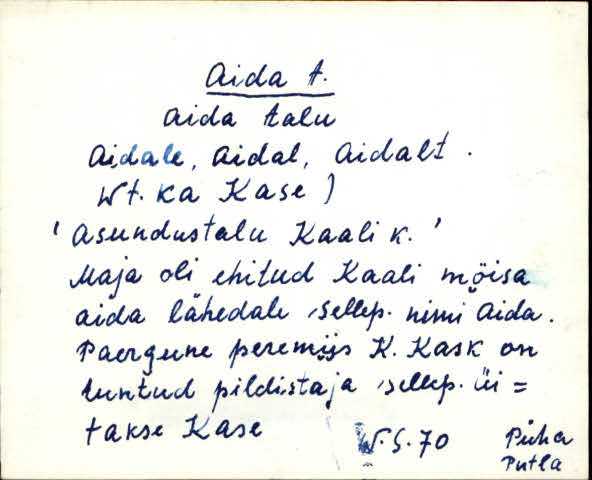 Aida t.
Aida talu
Aidale, Aidal, Aidalt.
Wt. ka Kase)
'Asundustalu Kaali k.'
Maja oli ehitud Kaali mõisa
aida lähedale, sellep. nimi Aida.
Paergune peremijs K. Kask on
tuntud pildistaja, sellep. üi=
takse Kase
S. 70 Püha
Putla